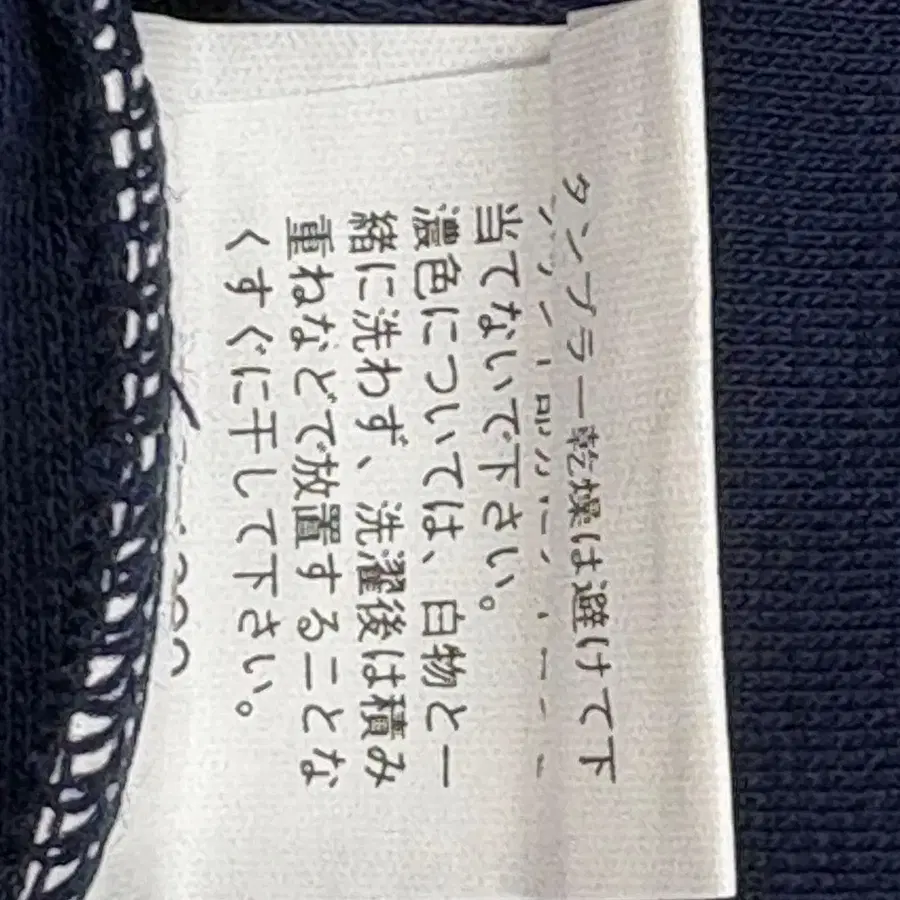 タンブラー乾燥は避けて下
当てないで下さい。
濃色については、白物と一
緒に洗わず、洗濯後は積み
重ねなどで放置することな
くすぐに干して下さい。